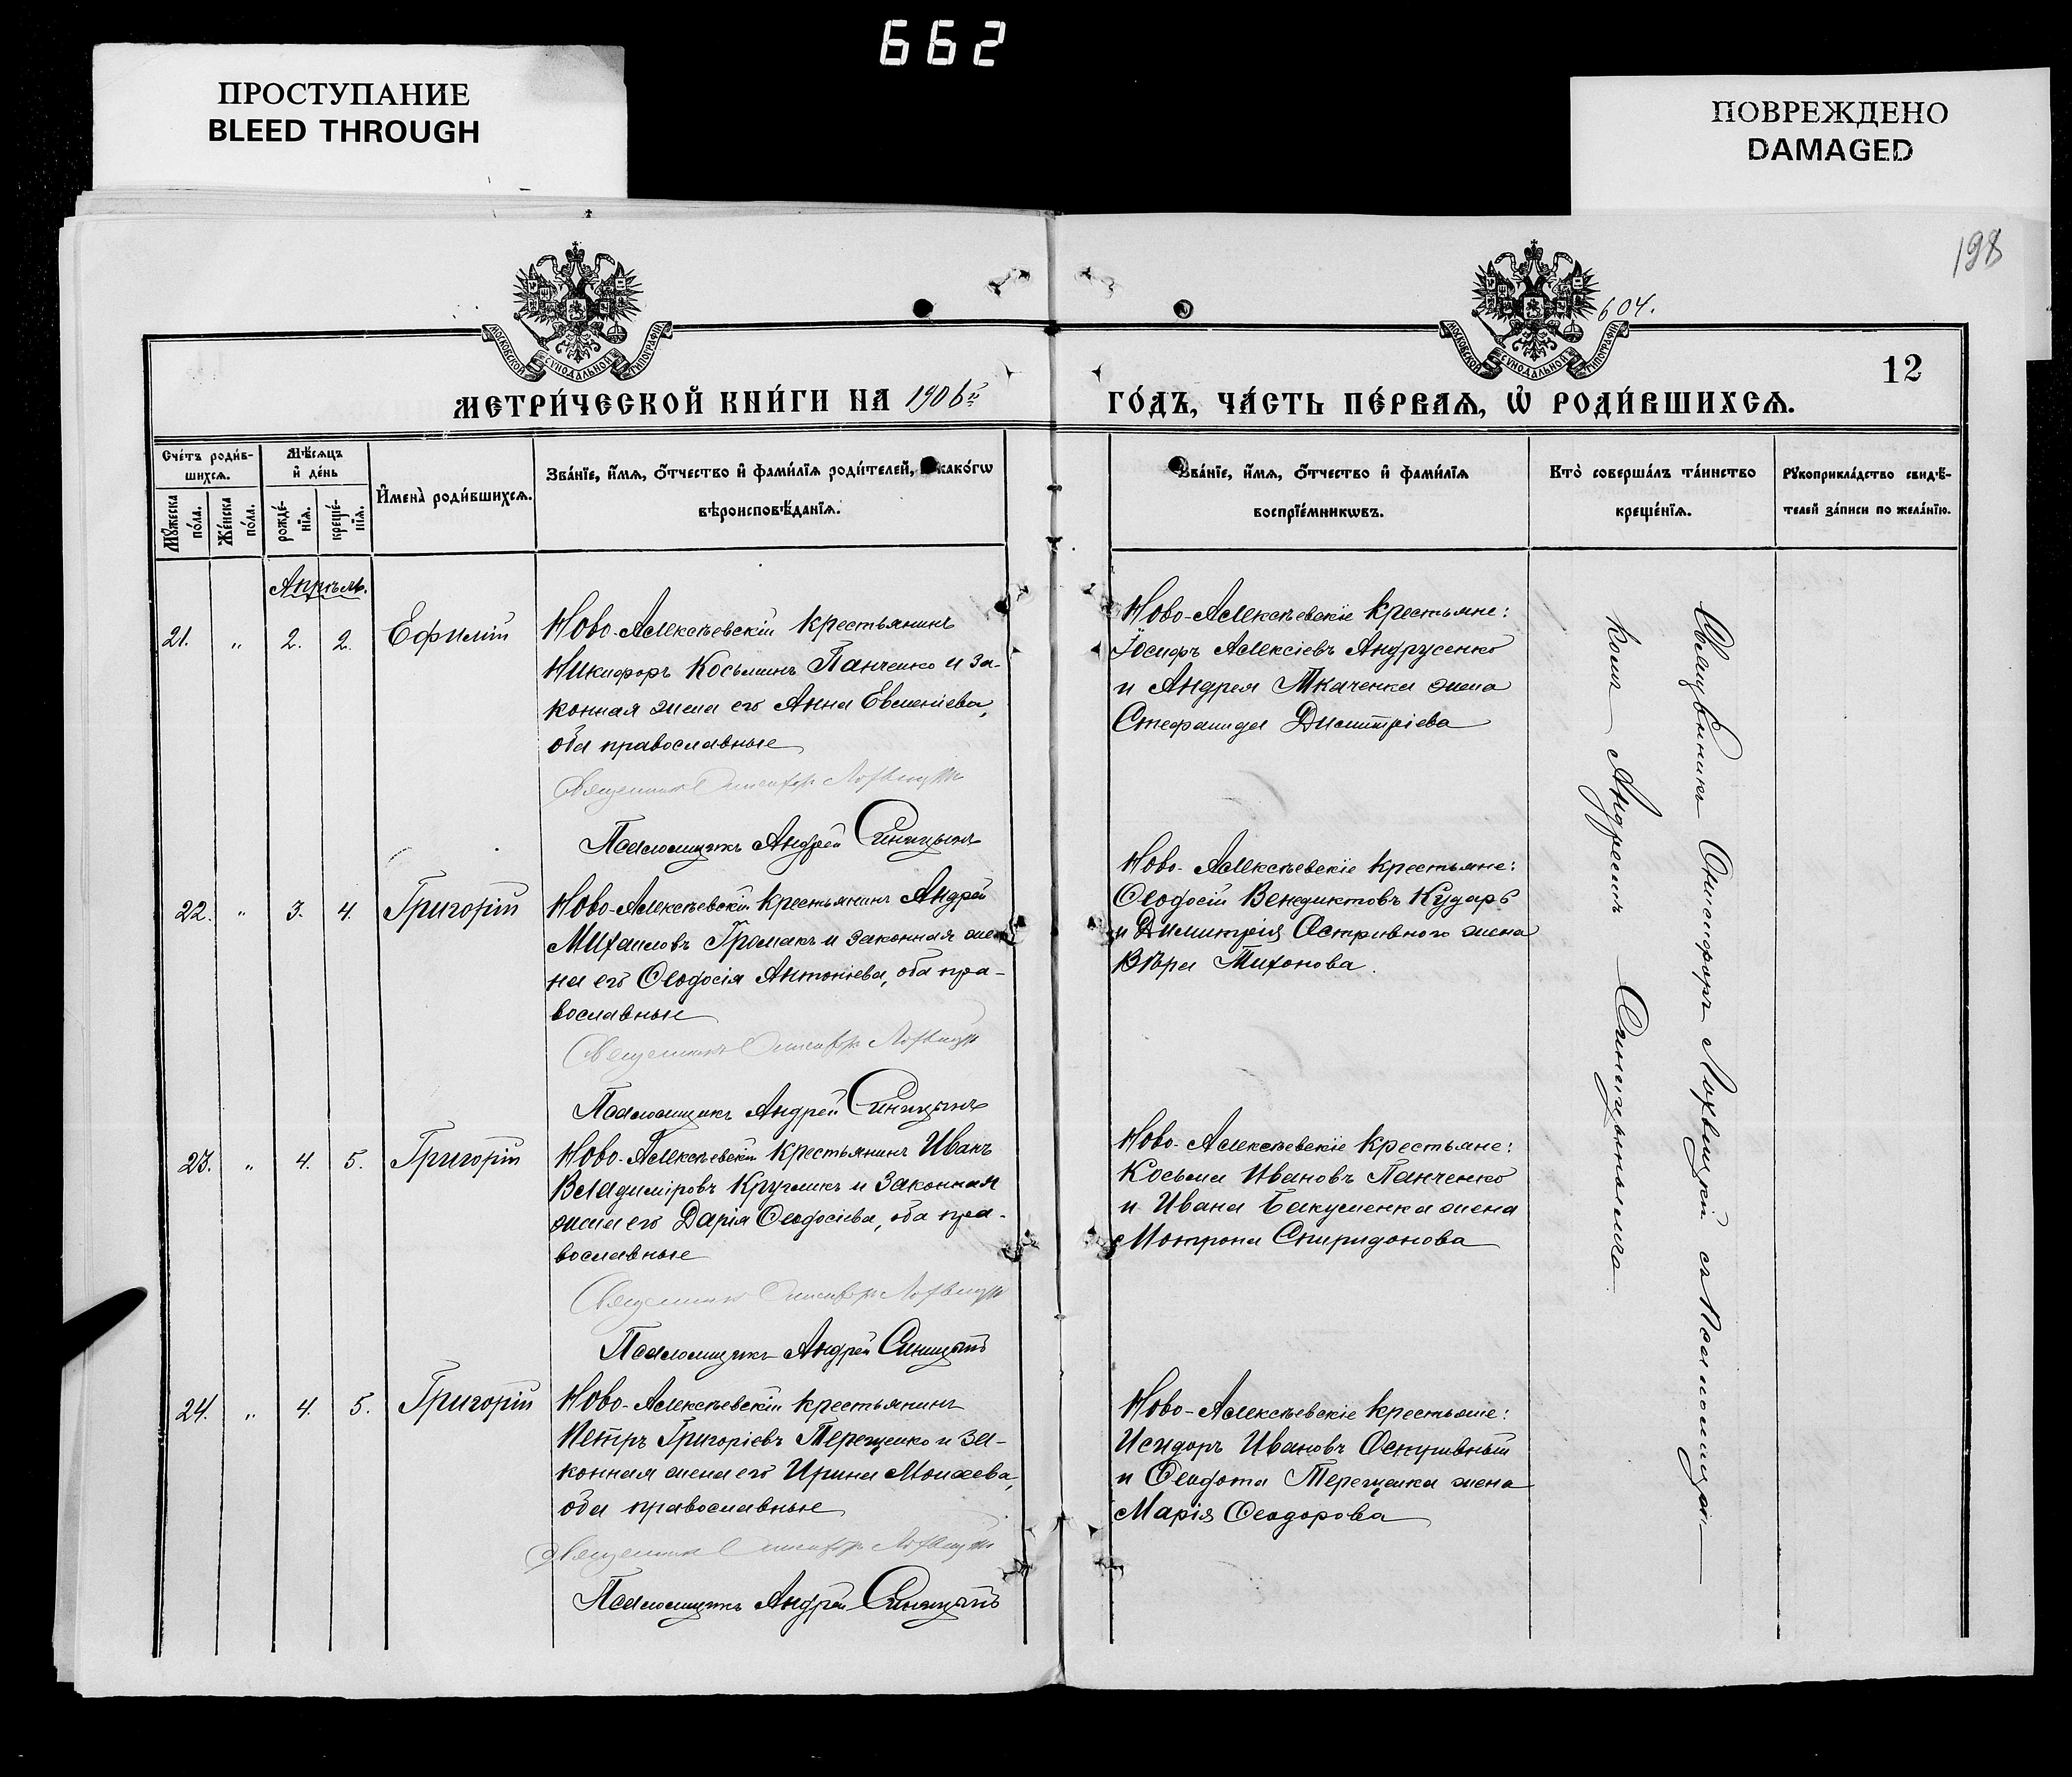 662
ПРОСТУПАНИЕ
BLEED THROUGH
ПОВРЕЖДЕНО
DAMAGED
198
604.
12
МОСКОВСКОЙ СѴНОДАЛЬНОЙ ТИПОГРАФІИ
МОСКОВСКОЙ СѴНОДАЛЬНОЙ ТИПОГРАФІИ
МЕТРИ́ЧЕСКОЙ КНИ́ГИ НА 1906й
ГО́ДЪ, ЧА́СТЬ ПЕ́РВАѦ, Ѡ҆ РОДИ́ВШИХСѦ.
Сче́тъ роди́в-
шихсѧ.
Мѣ́сѧцъ
и҆ де́нь
Мꙋ́жеска
по́ла.
Же́нска
по́ла.
рожде́-
нїѧ.
креще́-
нїѧ.
И҆мена̀ роди́вшихсѧ.
Зва́нїе, и҆́мѧ, ѻ҆́тчество и҆ фами́лїѧ роди́телей, како́гѡ
вѣроисповѣ́данїѧ.
Зва́нїе, и҆́мѧ, ѻ҆́тчество и҆ фами́лїѧ
воспрїе́мникѡвъ.
Кто̀ соверша́лъ та́инство
креще́нїѧ.
Рꙋкоприкла́дство свидѣ́-
телей за́писи по жела́нїю.
Апрѣль.
21. „ 2. 2. Ефимій
Ново-Алексѣевскій крестьянинъ
Никифоръ Косьминъ Панченко и за-
конная жена его Анна Евменіева,
оба православные
Священникъ Онисифоръ Лохвицкій
Псаломщикъ Андрей Синицынъ
Ново-Алексѣевскіе крестьяне:
Іосифъ Алексіевъ Андрусенко
и Андрея Ткаченка жена
Стефанида Димитріева
22. „ 3. 4. Григорій
Ново-Алексѣевскій крестьянинъ Андрей
Михаиловъ Громакъ и законная же
на его Ѳеодосія Антоніева, оба пра-
вославные
Священникъ Онисифоръ Лохвицкій
Псаломщикъ Андрей Синицынъ
Ново-Алексѣевскіе крестьяне:
Ѳеодосій Венедиктовъ Кударь
и Димитрія Остривного жена
Вѣра Тихонова.
23. „ 4. 5. Григорій
Ново-Алексѣевскій крестьянинъ Иванъ
Владиміровъ Кругликъ и законная
жена его Дарія Ѳеодосіева, оба пра-
вославные
Священникъ Онисифоръ Лохвицкій
Псаломщикъ Андрей Синицынъ
Ново-Алексѣевскіе крестьяне:
Косьма Ивановъ Панченко
и Ивана Бакуменка жена
Мотрона Спиридонова
24. „ 4. 5. Григорій
Ново-Алексѣевскій крестьянинъ
Петръ Григоріевъ Терещенко и за-
конная жена его Ирина Моисеева,
оба православные
Священникъ Онисифоръ Лохвицкій
Псаломщикъ Андрей Синицынъ
Ново-Алексѣевскіе крестьяне:
Исидоръ Ивановъ Остривный
и Ѳеодота Терещенка жена
Марія Ѳеодорова
Священникъ Онисифоръ Лохвицкій съ Псаломщи-
комъ Андреемъ Синицынымъ.